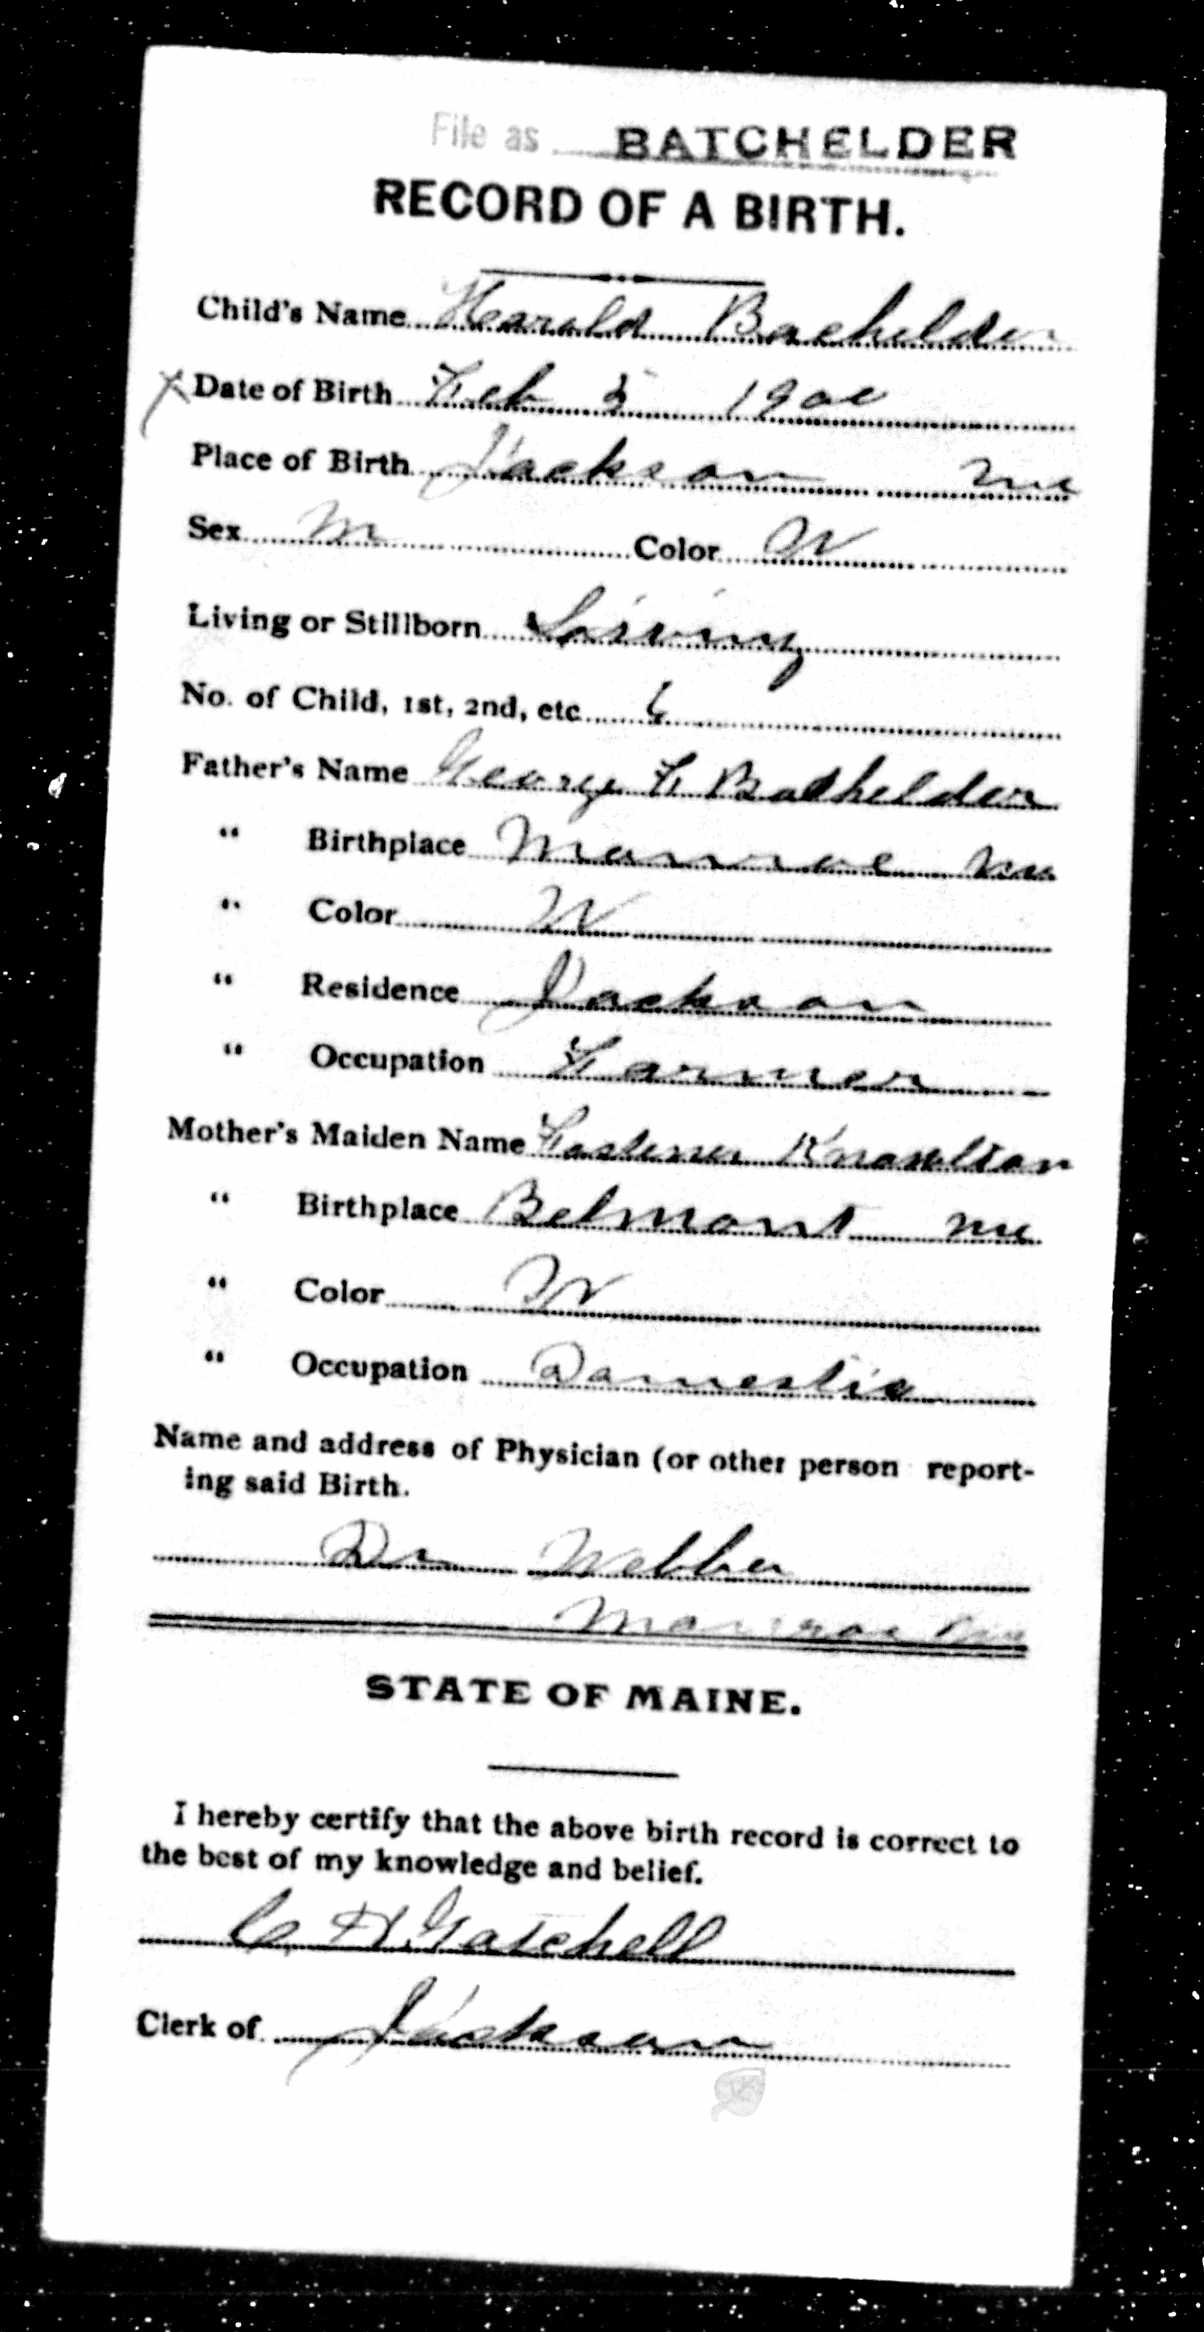 File as BATCHELDER
RECORD OF A BIRTH.
Child's Name Harold Bachelder
Date of Birth Feb 5 1900
Place of Birth Jackson Me
Sex M Color W
Living or Stillborn Living
No. of Child, 1st, 2nd, etc 6
Father's Name George F. Bachelder
" Birthplace Monroe Me
" Color W
" Residence Jackson
" Occupation Farmer
Mother's Maiden Name Knowlton
" Birthplace Belmont Me
" Color W
" Occupation Domestic
Name and address of Physician (or other person report-
ing said Birth.
Dr Webber
Monroe Me
STATE OF MAINE.
I hereby certify that the above birth record is correct to
the best of my knowledge and belief.
C H Gatchell
Clerk of Jackson